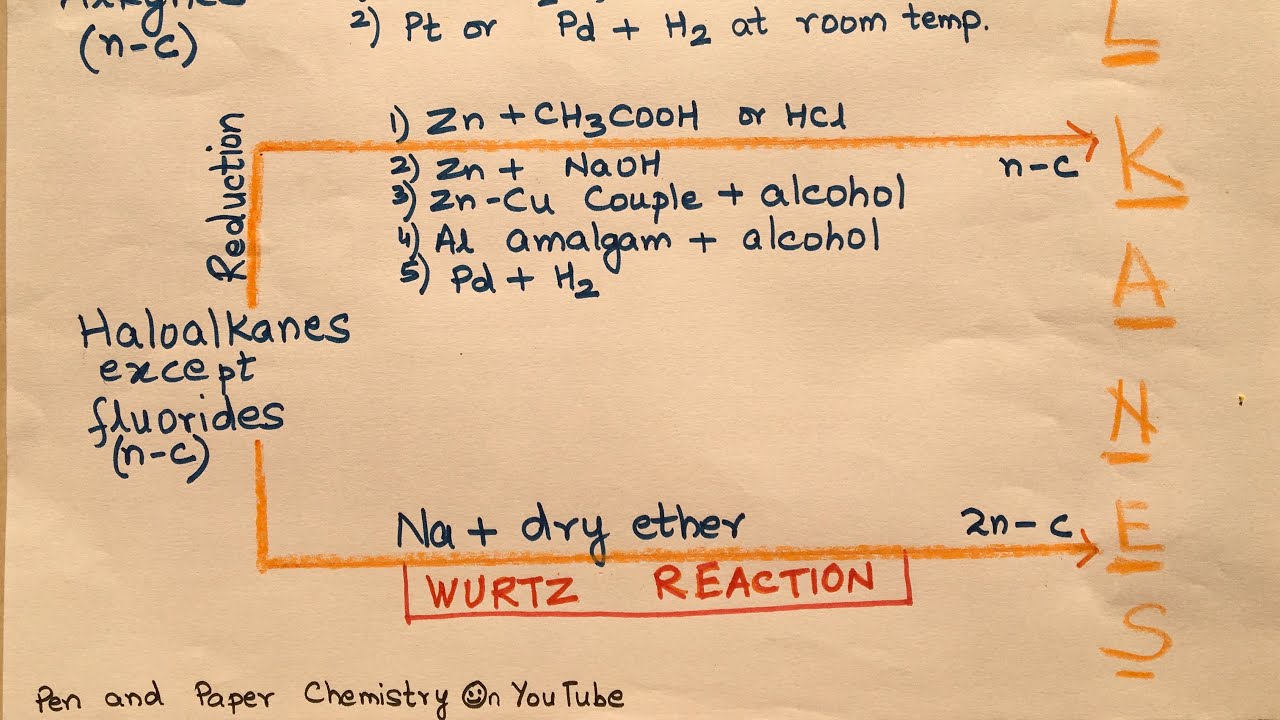 (n-c)
2) Pt or Pd + H2 at room temp.
L
K
A
N
E
S
Reduction
1) Zn + CH3COOH or HCl
2) Zn + NaOH
3) Zn-Cu Couple + alcohol
4) Al amalgam + alcohol
5) Pd + H2
n-c
Haloalkanes
except
fluorides
(n-c)
Na + dry ether
2n-c
WURTZ REACTION
Pen and Paper Chemistry On YouTube